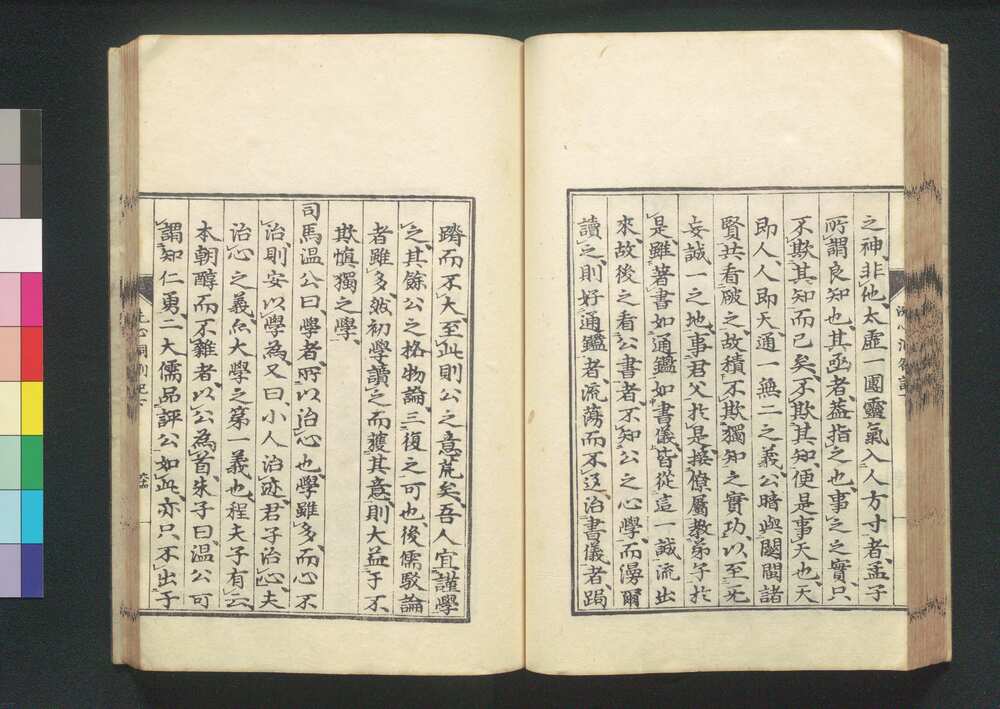 之神、非他、太虛一團靈氣、入人方寸者、孟子
所謂良知也、其函者、蓋指之也、事之之實、只
不欺其知而已矣、不欺其知、便是事天也、天
即人、人即天、通一無二之義、公暗與關閩諸
賢共看破之、故積不欺獨知之實功、以至无
妄誠一之地、事君父於是、接僚屬教弟子於
是、雖著書如通鑑如書儀、皆從這一誠流出
來、故後之看公書者、不知公之心學、而漫爾
讀之、則好通鑑者、流蕩而不返、治書儀者、跼
蹐而不大、至此則公之意荒矣、吾人宜謹學
之、其餘公之格物論、三復之可也、後儒駁論
者雖多、然初學讀之而獲其意、則大益于不
欺愼獨之學、
司馬溫公曰、學者、所以治心也、學雖多、而心不
治、則安以學為、又曰、小人治迹、君子治心、夫
治心之義、亦大學之第一義也、程夫子有云、
本朝醇而不雜者、以公為首、朱子曰、溫公可
謂知仁勇、二大儒品評公如此、亦只不出于